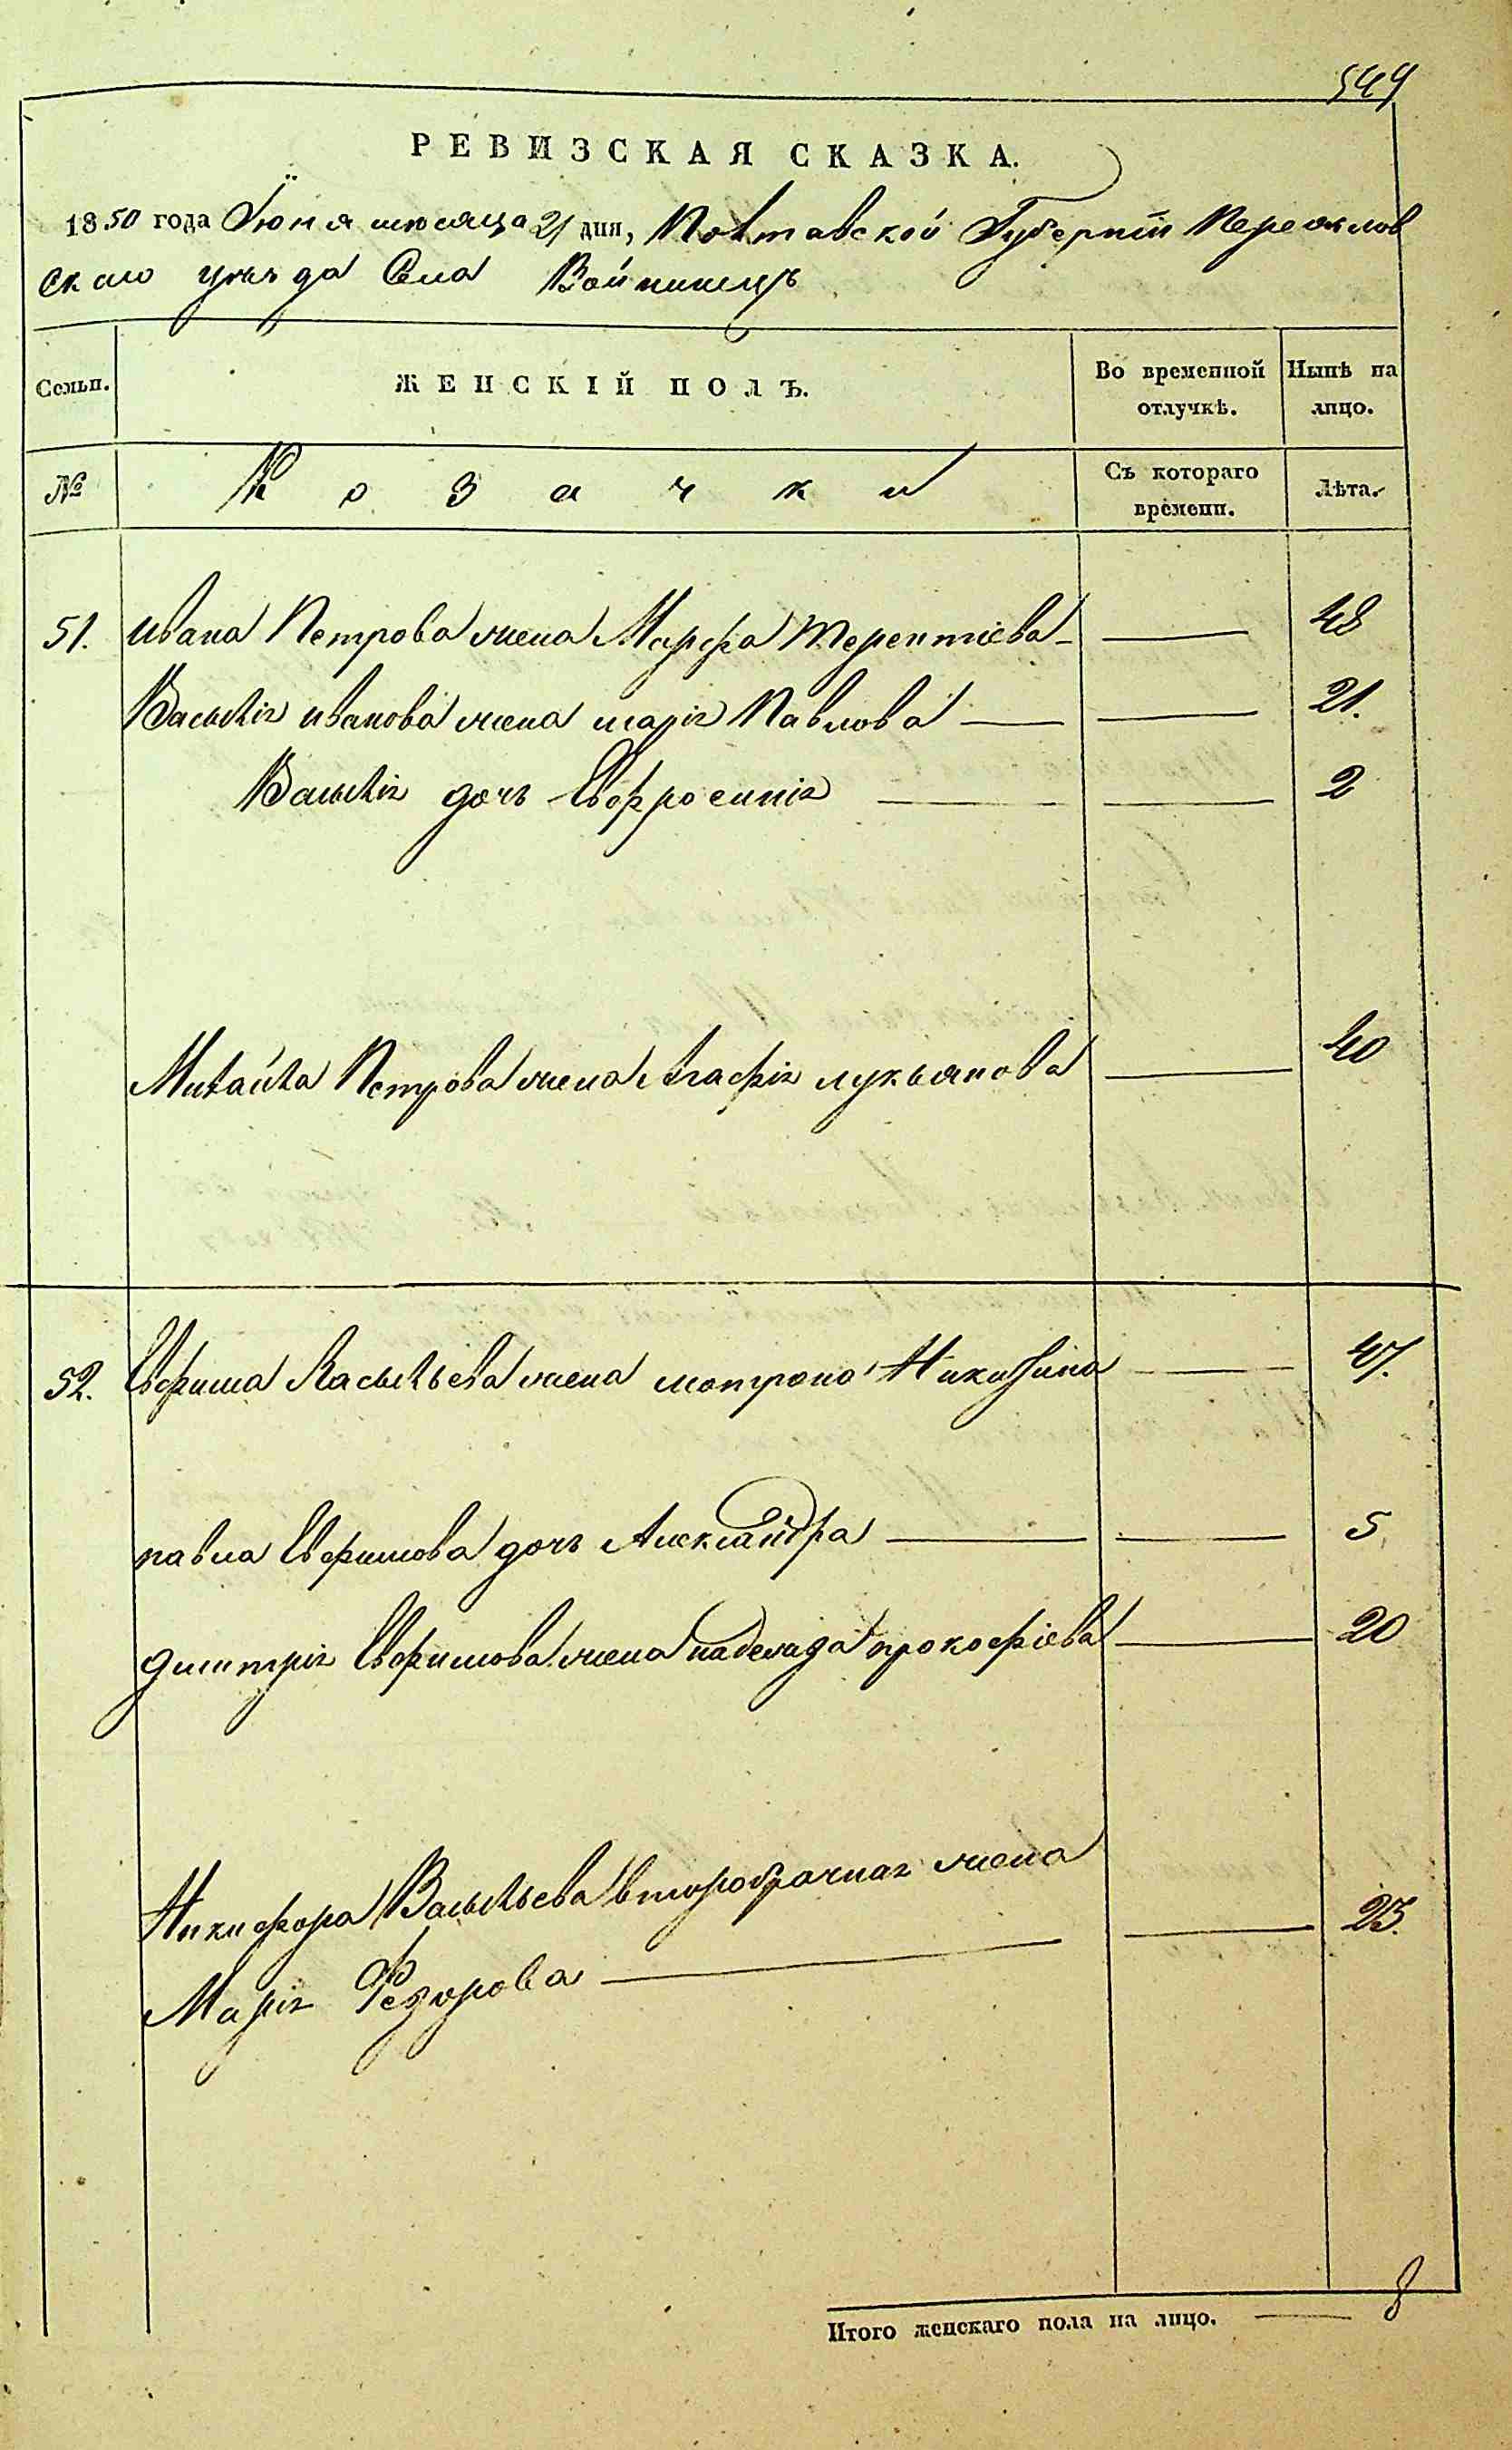 549
РЕВИЗСКАЯ СКАЗКА.
1850 года Іюня месяца 21 дня, Полтавской Губерніи Переяслов
скаго уезда Села Войтовецъ
Семьи. ЖЕНСКІЙ ПОЛЪ. Во временной отлучкѣ. Нынѣ на лицо.
№ Козачки Съ котораго времени. Лѣта.
51. Ивана Петрова жена Марфа Терентіева — 48
Василія иванова жена марія Павлова — 21.
Василія дочь Евфросинія — 2
Михайла Петрова жена Агафія лукьянова — 40
52. Ефима Васильева жена мотрона Никитина — 47.
павла Ефимова дочь Александра — 5
дмитрія Ефимова жена надежда прокофіева — 20
Никифора Васильева второбрачная жена
Марія Федорова — 25.
Итого женскаго пола на лицо. — 8